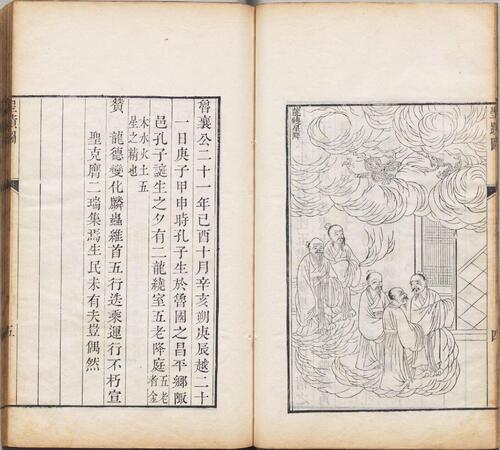 聖蹟圖
四
魯襄公二十一年己酉十月辛亥朔庚辰越二十
一日庚子甲申時孔子生於魯國之昌平鄉陬
邑孔子誕生之夕有二龍繞室五老降庭五老
者金
木水火土五
星之精也
贊 龍德變化麟蟲維首五行迭乘運行不朽宣
聖克膺二瑞集焉生民未有夫豈偶然
聖蹟圖
五